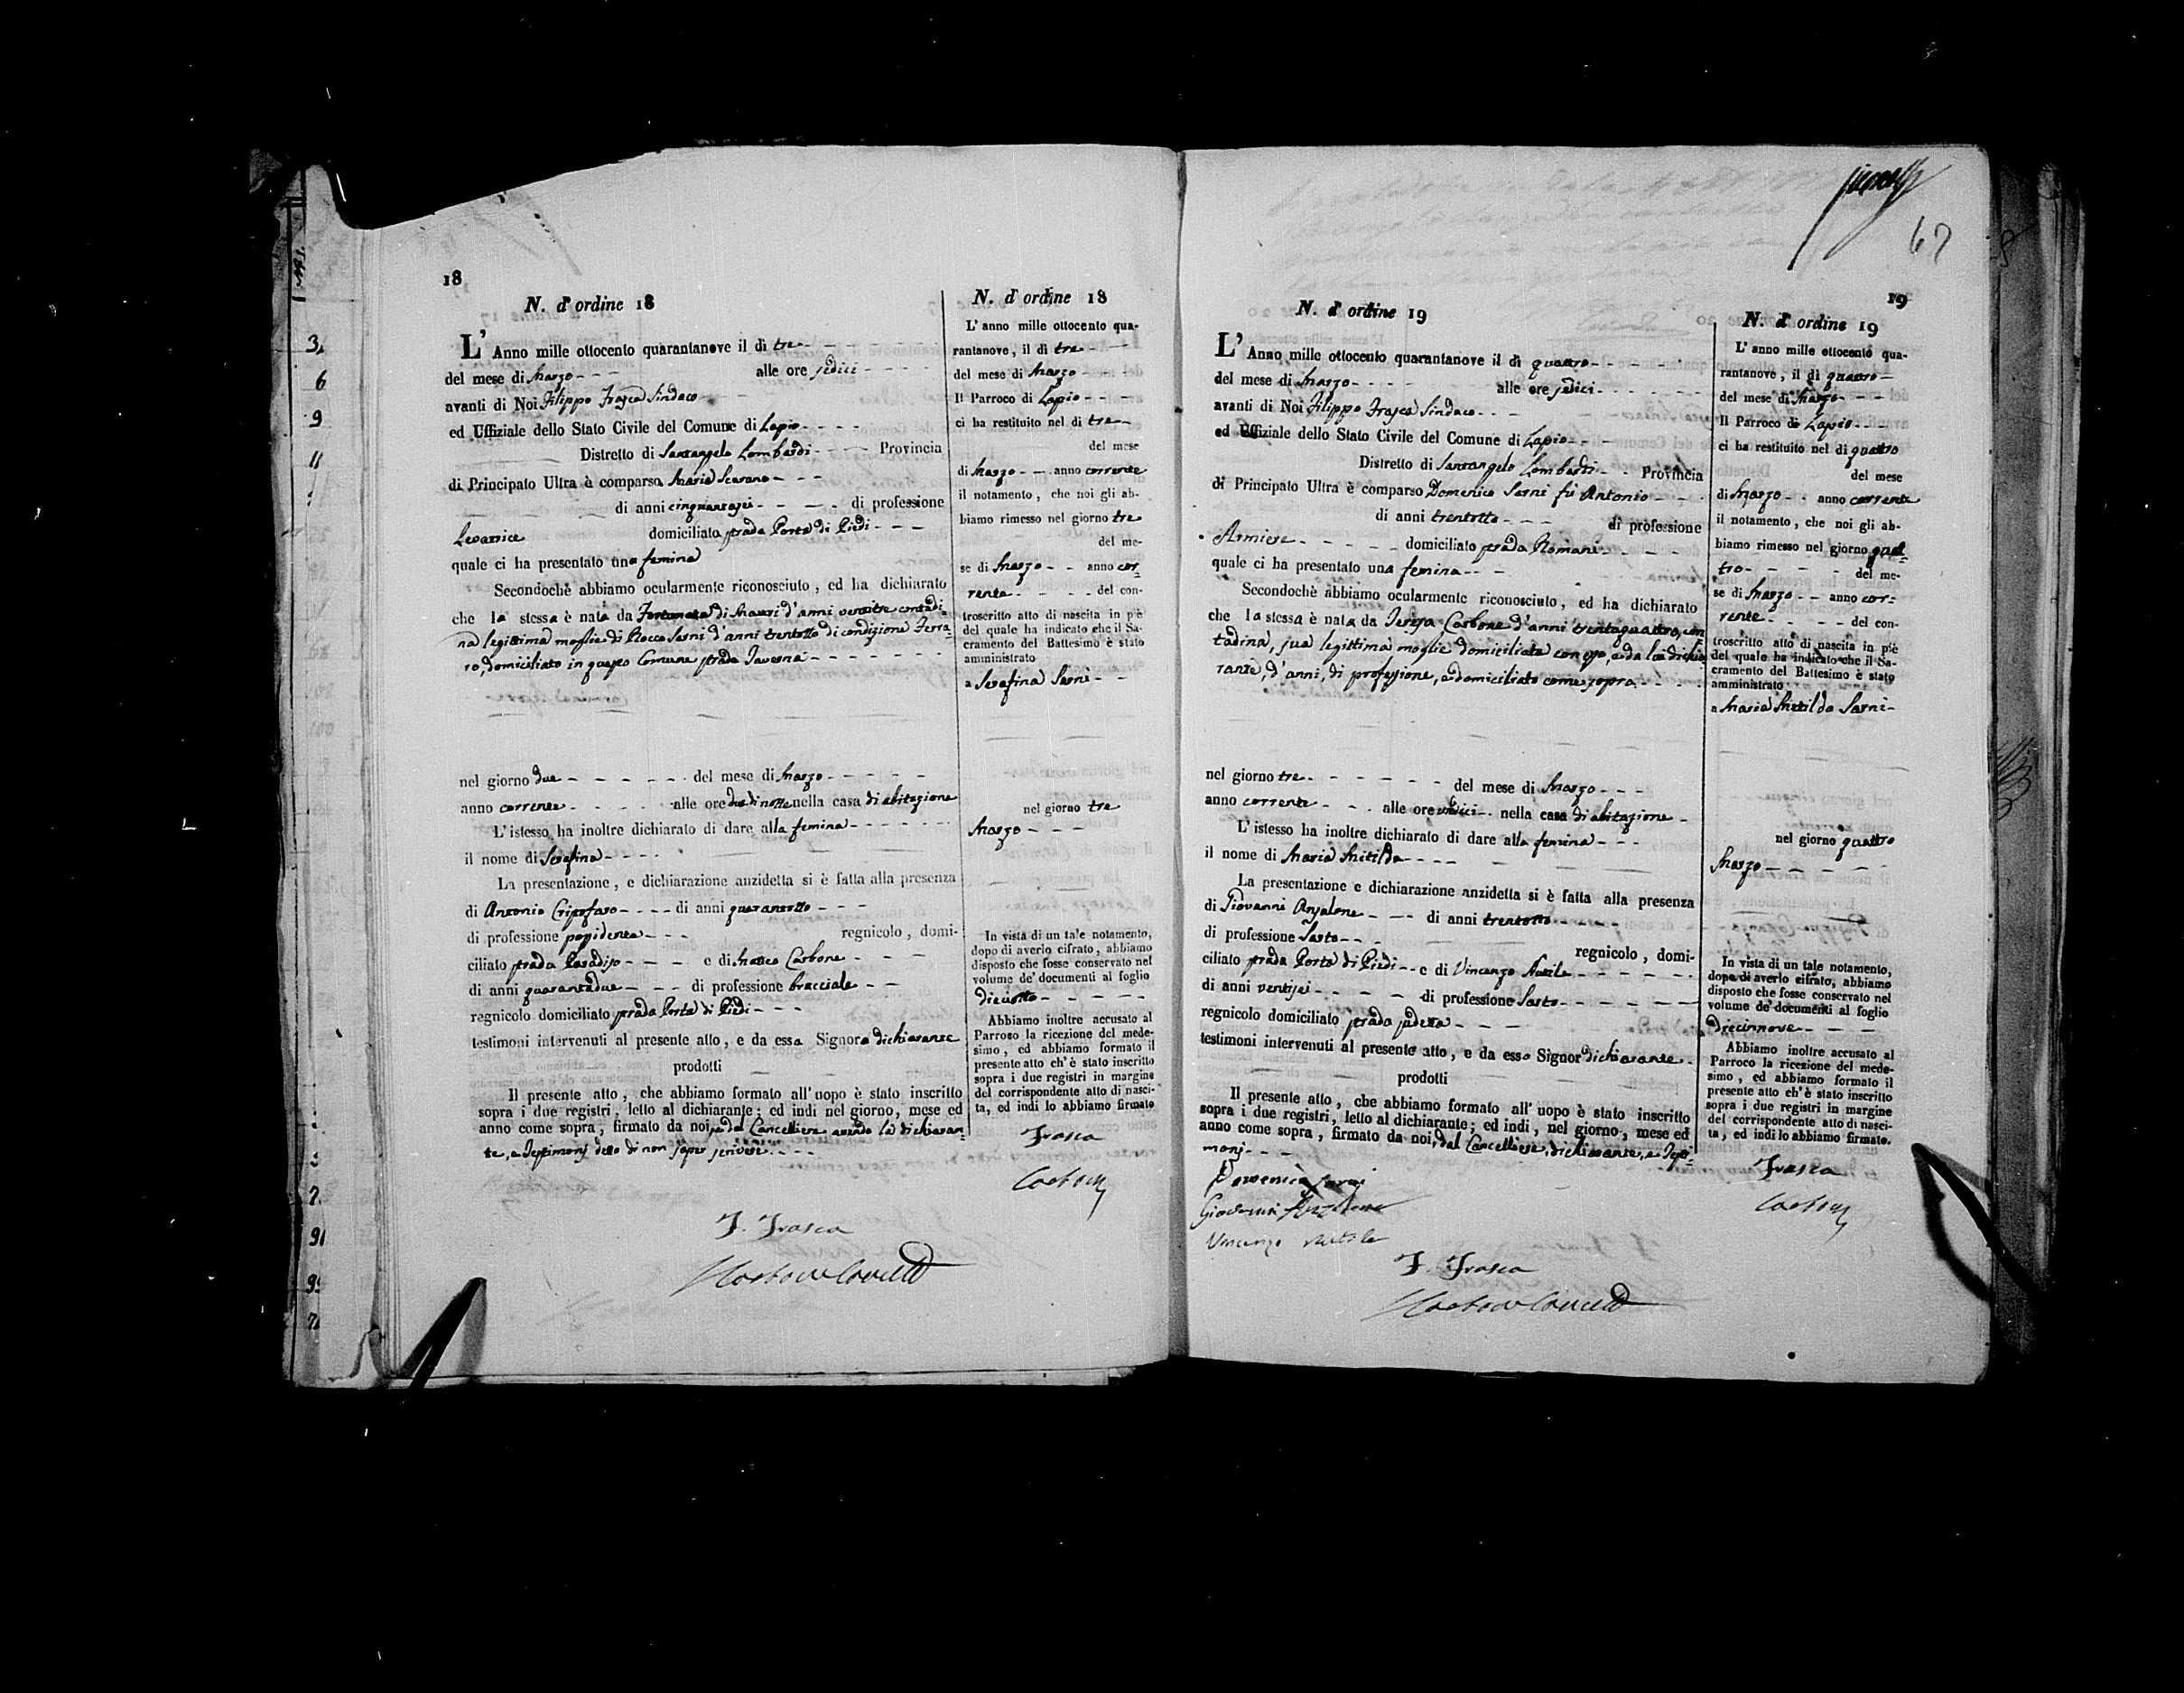 18
N. d'ordine 18
L'Anno mille ottocento quarantanove il dì tre
del mese di Marzo alle ore sedici
avanti di Noi Filippo Frasca Sindaco
ed Uffiziale dello Stato Civile del Comune di Lapio
Distretto di Santangelo Lombardi Provincia
di Principato Ultra è comparsa Maria Scarano
di anni cinquantasei di professione
Levatrice domiciliata strada Porta di Piedi
quale ci ha presentato una femina
Secondochè abbiamo ocularmente riconosciuto, ed ha dichiarato
che la stessa è nata da Fortunata di Mauri d'anni ventitre contadi-
na legittima moglie di Rocco Sarni d'anni trentotto di condizione Ferra-
ro, domiciliato in questo Comune strada Taverna
nel giorno due del mese di Marzo
anno corrente alle ore due di notte nella casa di abitazione
L'istesso ha inoltre dichiarato di dare alla femina
il nome di Serafina
La presentazione, e dichiarazione anzidetta si è fatta alla presenza
di Antonio Cristofaro di anni quarantotto
di professione possidente regnicolo, domi-
ciliato strada Paradiso e di Matteo Carbone
di anni quarantadue di professione bracciale
regnicolo domiciliato strada Porta di Piedi
testimoni intervenuti al presente atto, e da essa Signora dichiarante
prodotti
Il presente atto, che abbiamo formato all'uopo è stato inscritto
sopra i due registri, letto al dichiarante; ed indi nel giorno, mese ed
anno come sopra, firmato da noi, e dal Cancelliere avendo la dichiaran-
te, e Testimonj detto di non saper scrivere
F. Frasca
N. d'ordine 18
L'anno mille ottocento qua-
rantanove, il dì tre
del mese di Marzo
Il Parroco di Lapio
ci ha restituito nel dì tre
del mese
di Marzo anno corrente
il notamento, che noi gli ab-
biamo rimesso nel giorno tre
del me-
se di Marzo anno cor-
rente del con-
troscritto atto di nascita in piè
del quale ha indicato che il Sa-
cramento del Battesimo è stato
amministrato
a Serafina Sarni
nel giorno tre
Marzo
In vista di un tale notamento,
dopo di averlo cifrato, abbiamo
disposto che fosse conservato nel
volume de' documenti al foglio
diciotto
Abbiamo inoltre accusato al
Parroco la ricezione del mede-
simo, ed abbiamo formato il
presente atto ch'è stato inscritto
sopra i due registri in margine
del corrispondente atto di nasci-
ta, ed indi lo abbiamo firmato
Frasca
67
19
N. d'ordine 19
L'Anno mille ottocento quarantanove il dì quattro
del mese di Marzo alle ore sedici
avanti di Noi Filippo Frasca Sindaco
ed Uffiziale dello Stato Civile del Comune di Lapio
Distretto di Santangelo Lombardi Provincia
di Principato Ultra è comparso Domenico Sarni fù Antonio
di anni trentotto di professione
Armiere domiciliato strada Romani
quale ci ha presentato una femina
Secondochè abbiamo ocularmente riconosciuto, ed ha dichiarato
che la stessa è nata da Teresa Carbone d'anni trentaquattro, con-
tadina, sua legittima moglie domiciliata con esso, e da lui dichia-
rante, d'anni, di professione, e domiciliato come sopra
nel giorno tre del mese di Marzo
anno corrente alle ore undici nella casa di abitazione
L'istesso ha inoltre dichiarato di dare alla femina
il nome di Maria Mitilda
La presentazione e dichiarazione anzidetta si è fatta alla presenza
di Giovanni Anzalone di anni trentotto
di professione Sarto regnicolo, domi-
ciliato strada Porta di Piedi e di Vincenzo Autile
di anni ventisei di professione Sarto
regnicolo domiciliato strada
testimoni intervenuti al presente atto, e da esso Signor dichiarante
prodotti
Il presente atto, che abbiamo formato all'uopo è stato inscritto
sopra i due registri, letto al dichiarante; ed indi, nel giorno, mese ed
anno come sopra, firmato da noi, dal Cancelliere, dichiarante, e Testi-
monj
Domenico Sarni
Giovanni Anzalone
Vincenzo Autile
F. Frasca
N. d'ordine 19
L'anno mille ottocento qua-
rantanove, il dì quattro
del mese di Marzo
Il Parroco di Lapio
ci ha restituito nel dì quattro
del mese
di Marzo anno corrente
il notamento, che noi gli ab-
biamo rimesso nel giorno quat-
tro del me-
se di Marzo anno cor-
rente del con-
troscritto atto di nascita in piè
del quale ha indicato che il Sa-
cramento del Battesimo è stato
amministrato
a Maria Mitilda Sarni
nel giorno quattro
Marzo
In vista di un tale notamento,
dopo di averlo cifrato, abbiamo
disposto che fosse conservato nel
volume de' documenti al foglio
diecinnove
Abbiamo inoltre accusato al
Parroco la ricezione del mede-
simo, ed abbiamo formato il
presente atto ch'è stato inscritto
sopra i due registri in margine
del corrispondente atto di nasci-
ta, ed indi lo abbiamo firmato.
Frasca